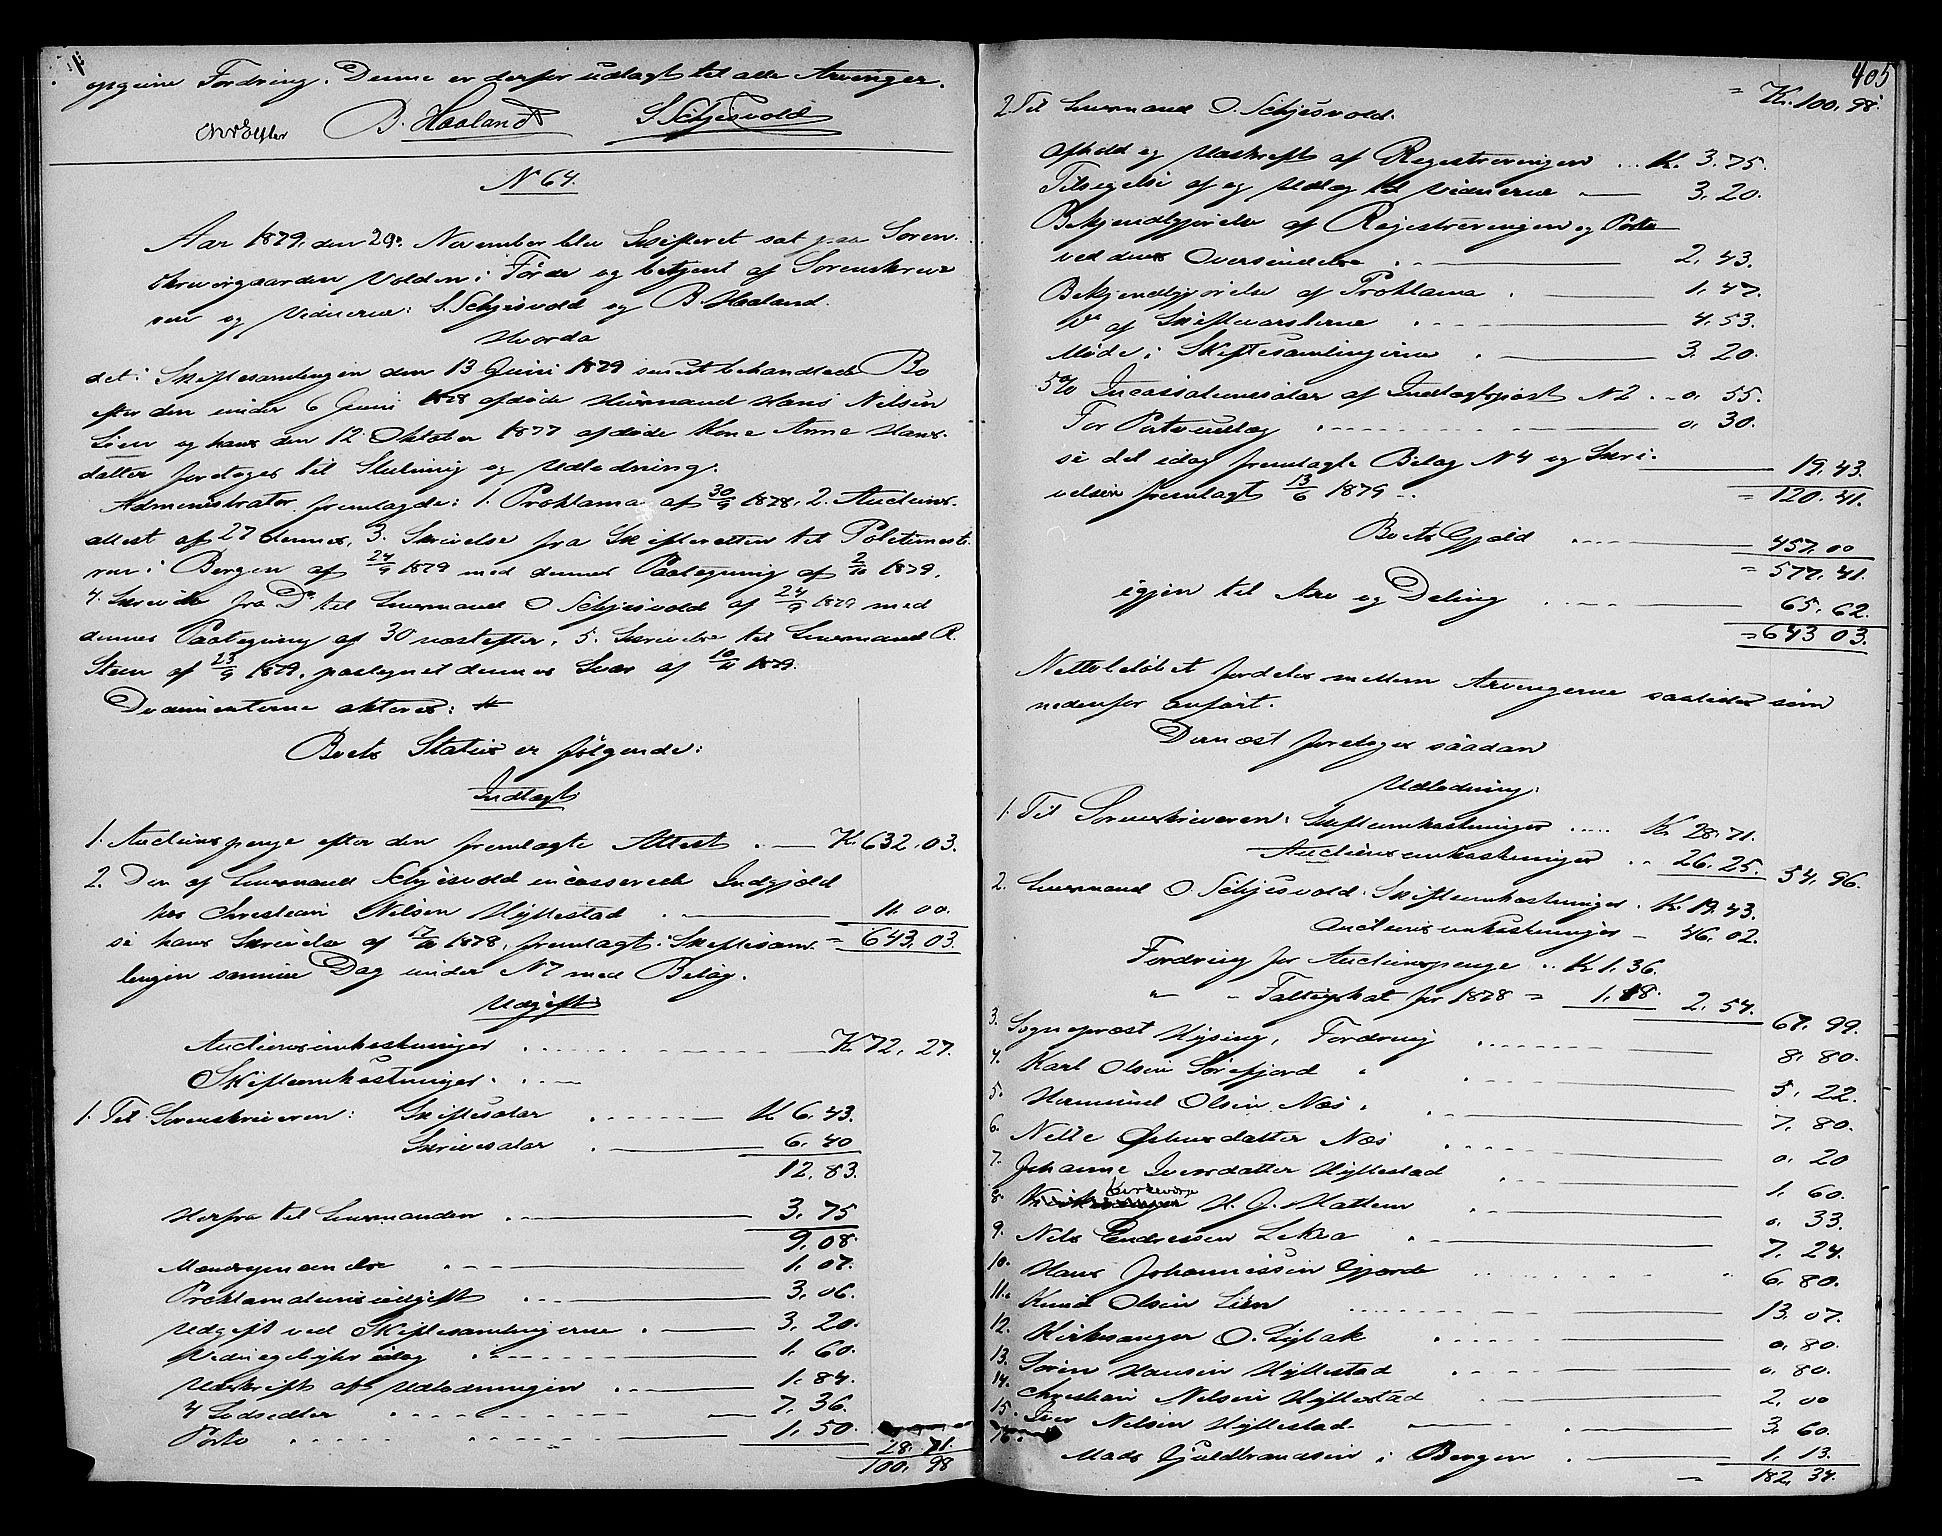 opgivne Fordring. Denne er derfor udlagt til alle Arvinger.
B. Haaland S. Schjesvold
N 64.
Aar 1879, den 29. November blev Skifteret sat paa Soren-
skrivergaarden Volden i Førde og betjent af Sorenskrive-
ren og Vidnerne: S. Schjesvold og B. Haaland.
Hvorda
det i Skiftesamlingen den 13 Juni 1879 senest behandlede Bo
efter den under 6 Juni 1878 afdøde Huusmand Hans Nilsen
Lien og hans den 12 Oktober 1877 afdøde Kone Anne Hans-
datter foretoges til Slutning og Udlodning.
Administrator fremlagde: 1. Proklama af 30/9 1878, 2. Auctions-
attest af 27 dennes, 3. Skrivelse fra Skifteretten til Politimeste-
ren i Bergen af 24/9 1879 med dennes Paategning af 2/10 1879,
4. Skrivelse fra Do til Lensmand O Schjesvold af 24/9 1879 med
dennes Paategning af 30 næstefter, 5. Skrivelse til Lensmand R.
Steen af 23/9 1879, paategnet dennes Svar af 10/11 1879.
Documenterne akteres:
Boets Status er følgende:
Indtægt
1. Auctionspenge efter den fremlagte Attest K. 632,03.
2. Den af Lensmand Schjesvold incasserede Indgjæld
hos Christian Nilsen Hyllestad 11.00.
se hans Skrivelse af 17/10 1878, fremlagt i Skiftesam- = 643,03.
lingen samme Dag under N 7 med Bilag.
Udgift
Auctionsomkostninger K. 72,27.
Skifteomkostninger.
1. Til Sorenskriveren: Skiftesalær K 6,43.
Skrivesalær 6,40
12,83.
Herfra til Lensmanden 3,75
9,08.
Mændsopnævnelse 1,07.
Proklamationsudgift 3,06.
Udgift ved Skiftesamlingerne 3,20.
Vidnegodtgj. idag 1,60.
Udskrift af Udlodningen 1,84.
4 Lodsedler 7,36.
Porto 1,50.
28,71.
100,98
405
= K. 100,98.
2. Til Lensmand O. Schjesvold.
Afhold og Udskrift af Registreringen K. 3,75.
Tilsigelse af og Udlæg til Vidnerne 3,20.
Bekjendtgjørelse af Registreringen og Porto
ved dens Oversendelse 2,43.
Bekjendtgjørelse af Proklama 1,47.
Do af Skiftevarslerne 4,53.
Møde i Skiftesamlingerne 3,20.
5% Incassationssalær af Indtægtspost N 2 0,55.
For Portoudlæg 0,30.
se det idag fremlagte Bilag N 4 og Skri- 19,43.
velsen fremlagt 13/6 1879 = 120,41.
Boets Gjæld 457,00
= 577,41.
igjen til Arv og Deling 65,62.
= 643 03.
Nettobeløbet fordeles mellem Arvingerne saaledes som
nedenfor anført.
Dernæst foretoges saadan
Udlodning:
1. Til Sorenskriveren: Skifteomkostninger K. 28,71.
Auctionsomkostninger 26,25. 54,96.
2. Lensmand O. Schjesvold: Skifteomkostninger K. 19,43.
Auctionsomkostninger 46,02.
Fordring for Auctionspenge K 1,36.
" " Fattigskat for 1878 = 1,18. 2,54.
67,99.
3. Sognepræst Hysing, Fordring 8,80.
4. Karl Olsen Sørefjord 5,22.
5. Herminel Olsen Næs 7,80.
6. Nille Olsensdatter Næs 0,20
7. Johanne Iversdatter Hyllestad 1,60.
8. Kirkeværge H. J. Hatlem 0,33.
9. Nils Endresen Lekva 7,24.
10. Hans Johannessen Gjærde 6,80.
11. Knud Olsen Lien 13,07.
12. Kirkesanger O. Sigbak 0,80.
13. Søren Hansen Hyllestad 0,80.
14. Christian Nilsen Hyllestad 2,00
15. Iver Nilsen Hyllestad 3,60.
16. Mads Guldbrandsen i Bergen 1,13.
= 182,34.